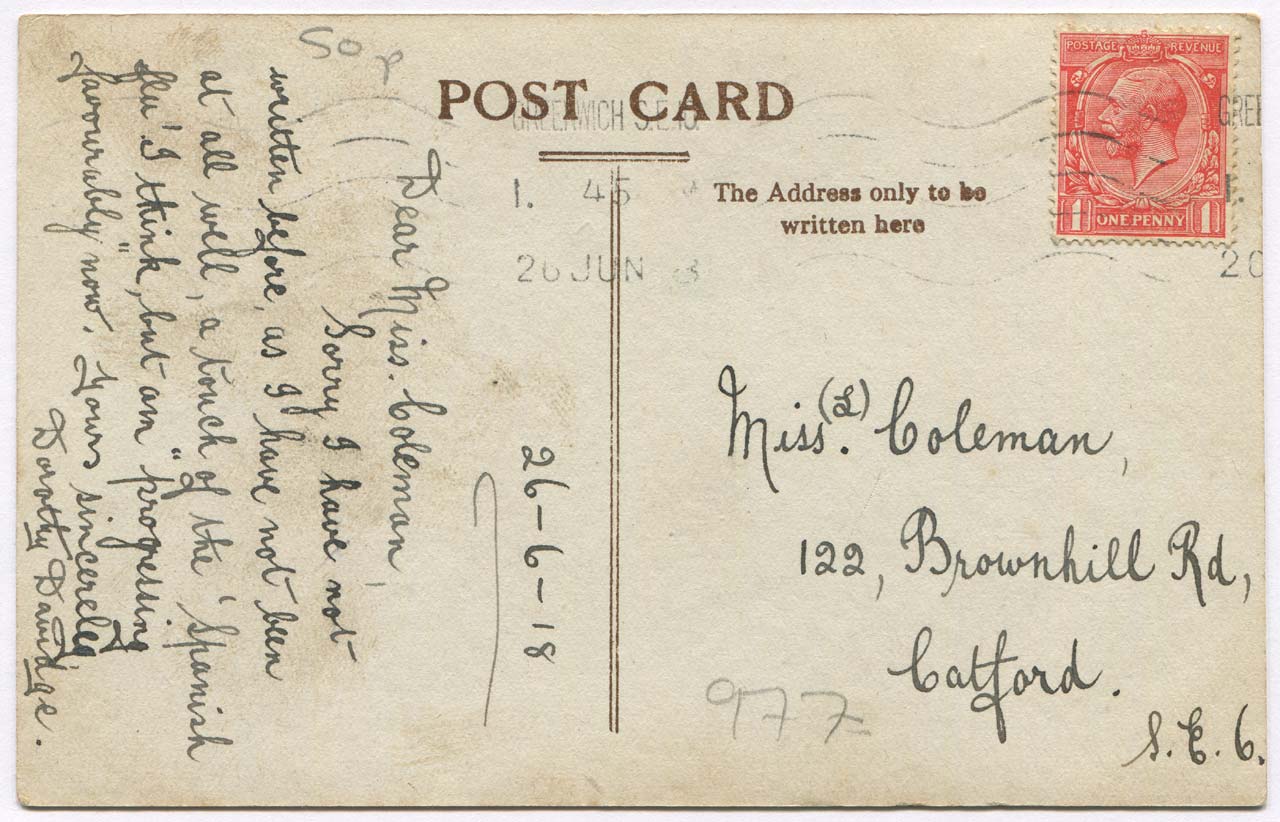 POST CARD
GREENWICH S.E.10.
1. 45
26 JUN 
The Address only to be
written here
POSTAGE REVENUE
1 ONE PENNY 1
GREE
1.
26
26-6-18
Dear Miss. Coleman,
Sorry I have not
written before, as I have not been
at all well, a touch of the 'Spanish
flu'. I think, but am "progessing
favourably" now. Yours sincerely
Dorothy Davidge.
Miss. (L) Coleman,
122, Brownhill Rd,
Catford.
S.E.6.
977